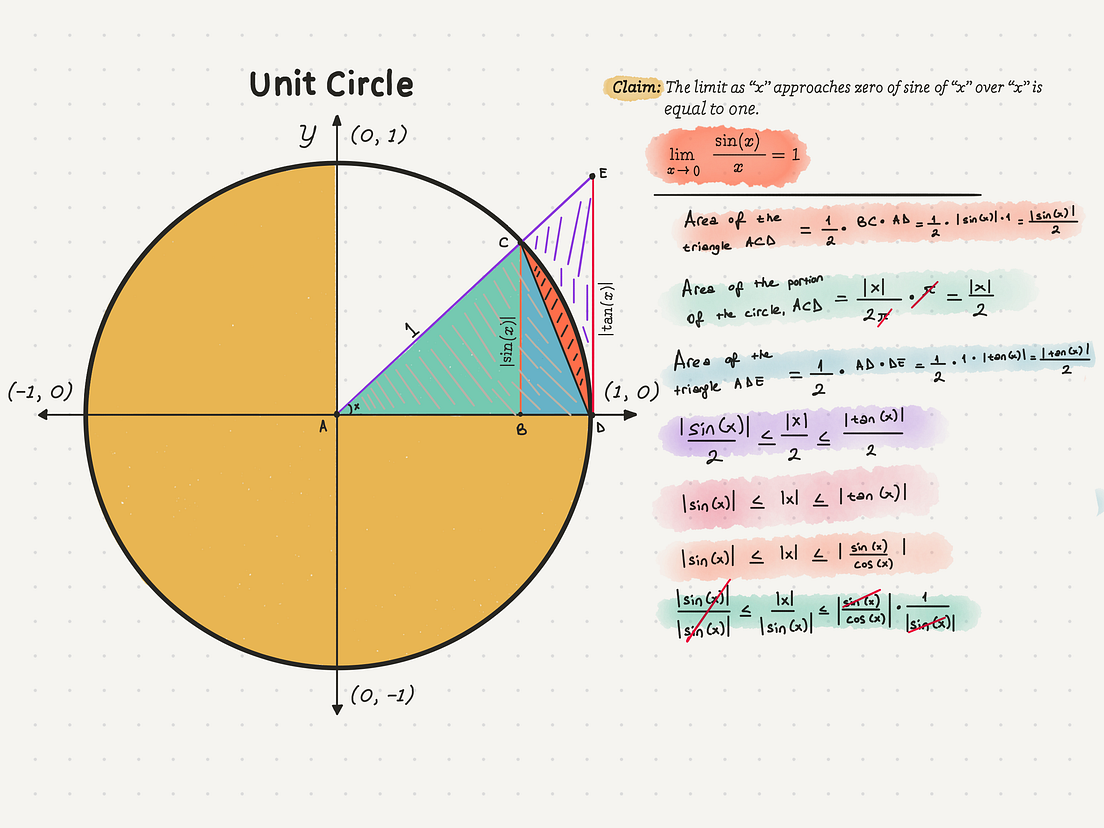 Unit Circle
Claim: The limit as “x” approaches zero of sine of “x” over “x” is
equal to one.
lim x→0 sin(x)/x = 1
y
(0, 1)
E
C
1
|sin(x)|
|tan(x)|
(-1, 0)
(1, 0)
x
A
B
D
(0, -1)
Area of the
triangle ACD = 1/2 · BC · AD = 1/2 · |sin(x)| · 1 = |sin(x)|/2
Area of the portion
of the circle, ACD = |x|/2π · π = |x|/2
Area of the
triangle ADE = 1/2 · AD · DE = 1/2 · 1 · |tan(x)| = |tan(x)|/2
|sin(x)|/2 ≤ |x|/2 ≤ |tan(x)|/2
|sin(x)| ≤ |x| ≤ |tan(x)|
|sin(x)| ≤ |x| ≤ |sin(x)/cos(x)|
|sin(x)|/|sin(x)| ≤ |x|/|sin(x)| ≤ |sin(x)/cos(x)| · 1/|sin(x)|